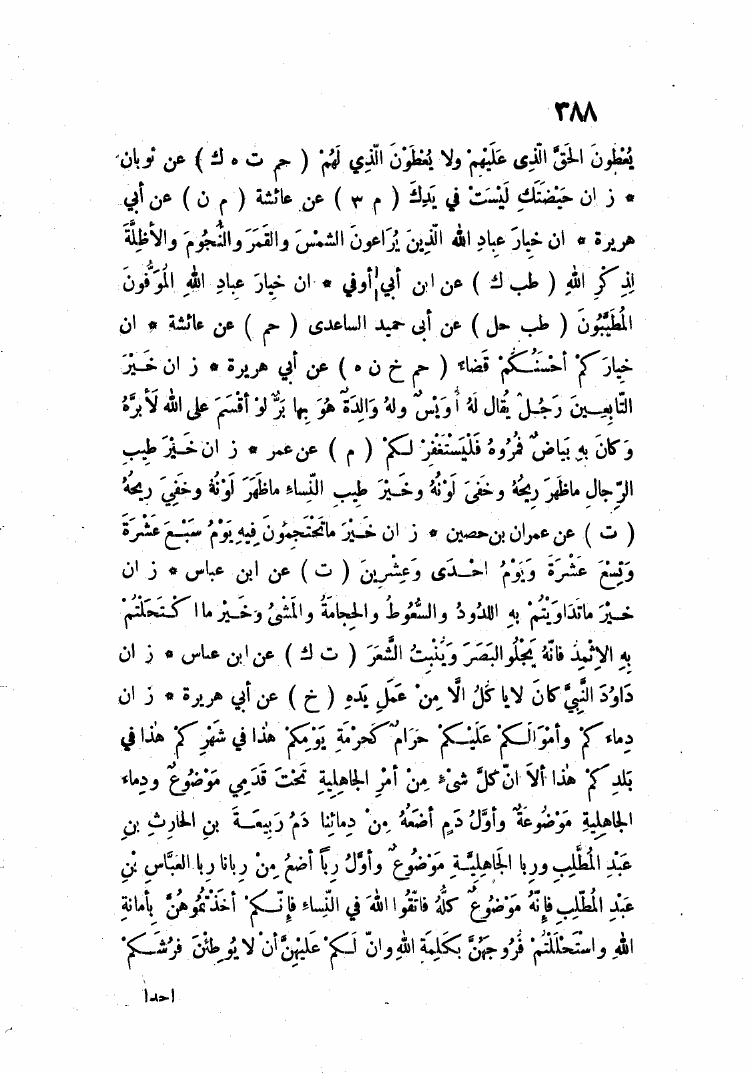 ٣٨٨
يُعْطُونَ الحَقَّ الَّذِى عَلَيْهِمْ ولا يُعْطَوْنَ الَّذِي لَهُمْ ( حم ت ه ك ) عن ثوبان
* ز ان حَيْضَتَكِ لَيْسَتْ في يَدِكَ ( م ٣ ) عن عائشة ( م ن ) عن أبي
هريرة * ان خيارَ عبادِ اللهِ الَّذِينَ يُرَاعونَ الشمْسَ والقمَرَ والنُّجُومَ والأظِلَّةَ
لِذِكْرِ اللهِ ( طب ك ) عن ابن أبي أوفي * ان خِيارَ عبادِ اللهِ المُوَفُّونَ
المُطَيَّبُونَ ( طب حل ) عن أبى حميد الساعدى ( حم ) عن عائشة * ان
خيارَكمْ أحْسَنُكُمْ قَضاءً ( حم خ ن ه ) عن أبي هريرة * ز ان خَيْرَ
التَّابِعِينَ رَجُلٌ يُقالُ لَهُ أُوَيْسٌ ولهُ والِدَةٌ هُوَ بها بَرٌّ لوْ أقْسَمَ على الله لَأَبَرَّهُ
وَكانَ بهِ بَياضٌ فَمُرُوهُ فَلْيَسْتَغْفِرْ لكمْ ( م ) عن عمر * ز ان خَيْرَ طِيبِ
الرِّجالِ ماظَهَرَ رِيحُهُ وخفَىَ لَوْنُهُ وخَيْرَ طِيبِ النِّساءِ ماظَهَرَ لَوْنُهُ وخَفِيَ رِيحُهُ
( ت ) عن عمران بن حصين * ز ان خَيْرَ ماتَحْتَجِمُونَ فِيهِ يَوْمُ سَبْعَ عَشْرَةَ
وَتِسْعَ عَشْرَةَ وَيَوْمُ احْدَى وَعِشْرِينَ ( ت ) عن ابن عباس * ز ان
خَيْرَ ماتَدَاوَيْتُمْ بهِ اللدُودُ والسَّعُوطُ والحِجامَةُ والمَشْىُ وخَيْرَ ما اكْتَحَلْتُمْ
بِهِ الاِثْمِدُ فانَّهُ يَجْلُو البَصَرَ وَيُنْبِتُ الشَّعَرَ ( ت ك ) عن ابن عباس * ز ان
دَاوُدَ النَّبِيَّ كانَ لايأكُلُ الَّا مِنْ عَمَلِ يَدِهِ ( خ ) عن أبي هريرة * ز ان
دِماءَكمْ وأمْوَالَكمْ عَلَيْكمْ حَرَامٌ كَحُرْمَةِ يَوْمِكمْ هٰذا في شَهْرِكمْ هٰذا في
بَلَدِكمْ هٰذا ألاَ انّ كلَّ شىْءٍ مِنْ أمْرِ الجاهِليةِ تَحْتَ قَدَمِي مَوْضُوعٌ ودِماءُ
الجاهِليةِ مَوْضُوعَةٌ وأوَّلُ دَمٍ أضَعُهُ مِنْ دِمائِنا دَمُ رَبِيعَةَ بنِ الحَارِثِ بنِ
عَبْدِ المُطَّلِبِ وربا الجاهِليَّةِ مَوْضُوعٌ وأوَّلُ رِباً أضعُ مِنْ رِبانا رِبا العَبَّاسِ بْنِ
عَبْدِ المُطَّلِبِ فإنَّهُ مَوْضُوعٌ كلُّهُ فاتَّقُوا اللهَ في النِّساءِ فإنَّكمْ أخَذْتُمُوهُنَّ بأمانةِ
اللهِ واسْتَحْلَلْتُمْ فُرُوجَهُنَّ بكَلِمَةِ اللهِ وانّ لَكمْ عَليْهِنَّ أنْ لا يُوطِئْنَ فُرُشَكمْ
احدا